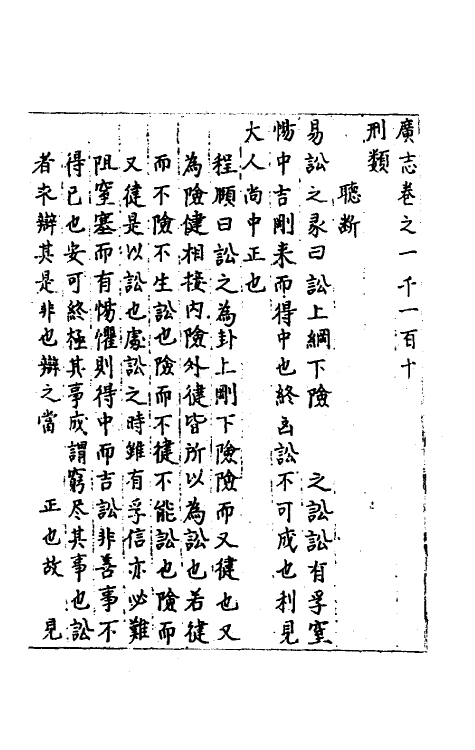 廣志卷之一千一百十
刑類
聽斷
易訟之彖曰訟上綱下險 之訟訟有孚窒
惕中吉剛來而得中也終凶訟不可成也利見
大人尚中正也
程頤曰訟之為卦上剛下險險而又健也又
為險健相接內險外健皆所以為訟也若健
而不險不生訟也險而不健不能訟也險而
又健是以訟也處訟之時雖有孚信亦必難
阻窒塞而有惕懼則得中而吉訟非善事不
得已也安可終極其事成謂窮尽其事也訟
者求辯其是非也辯之當 正也故 見